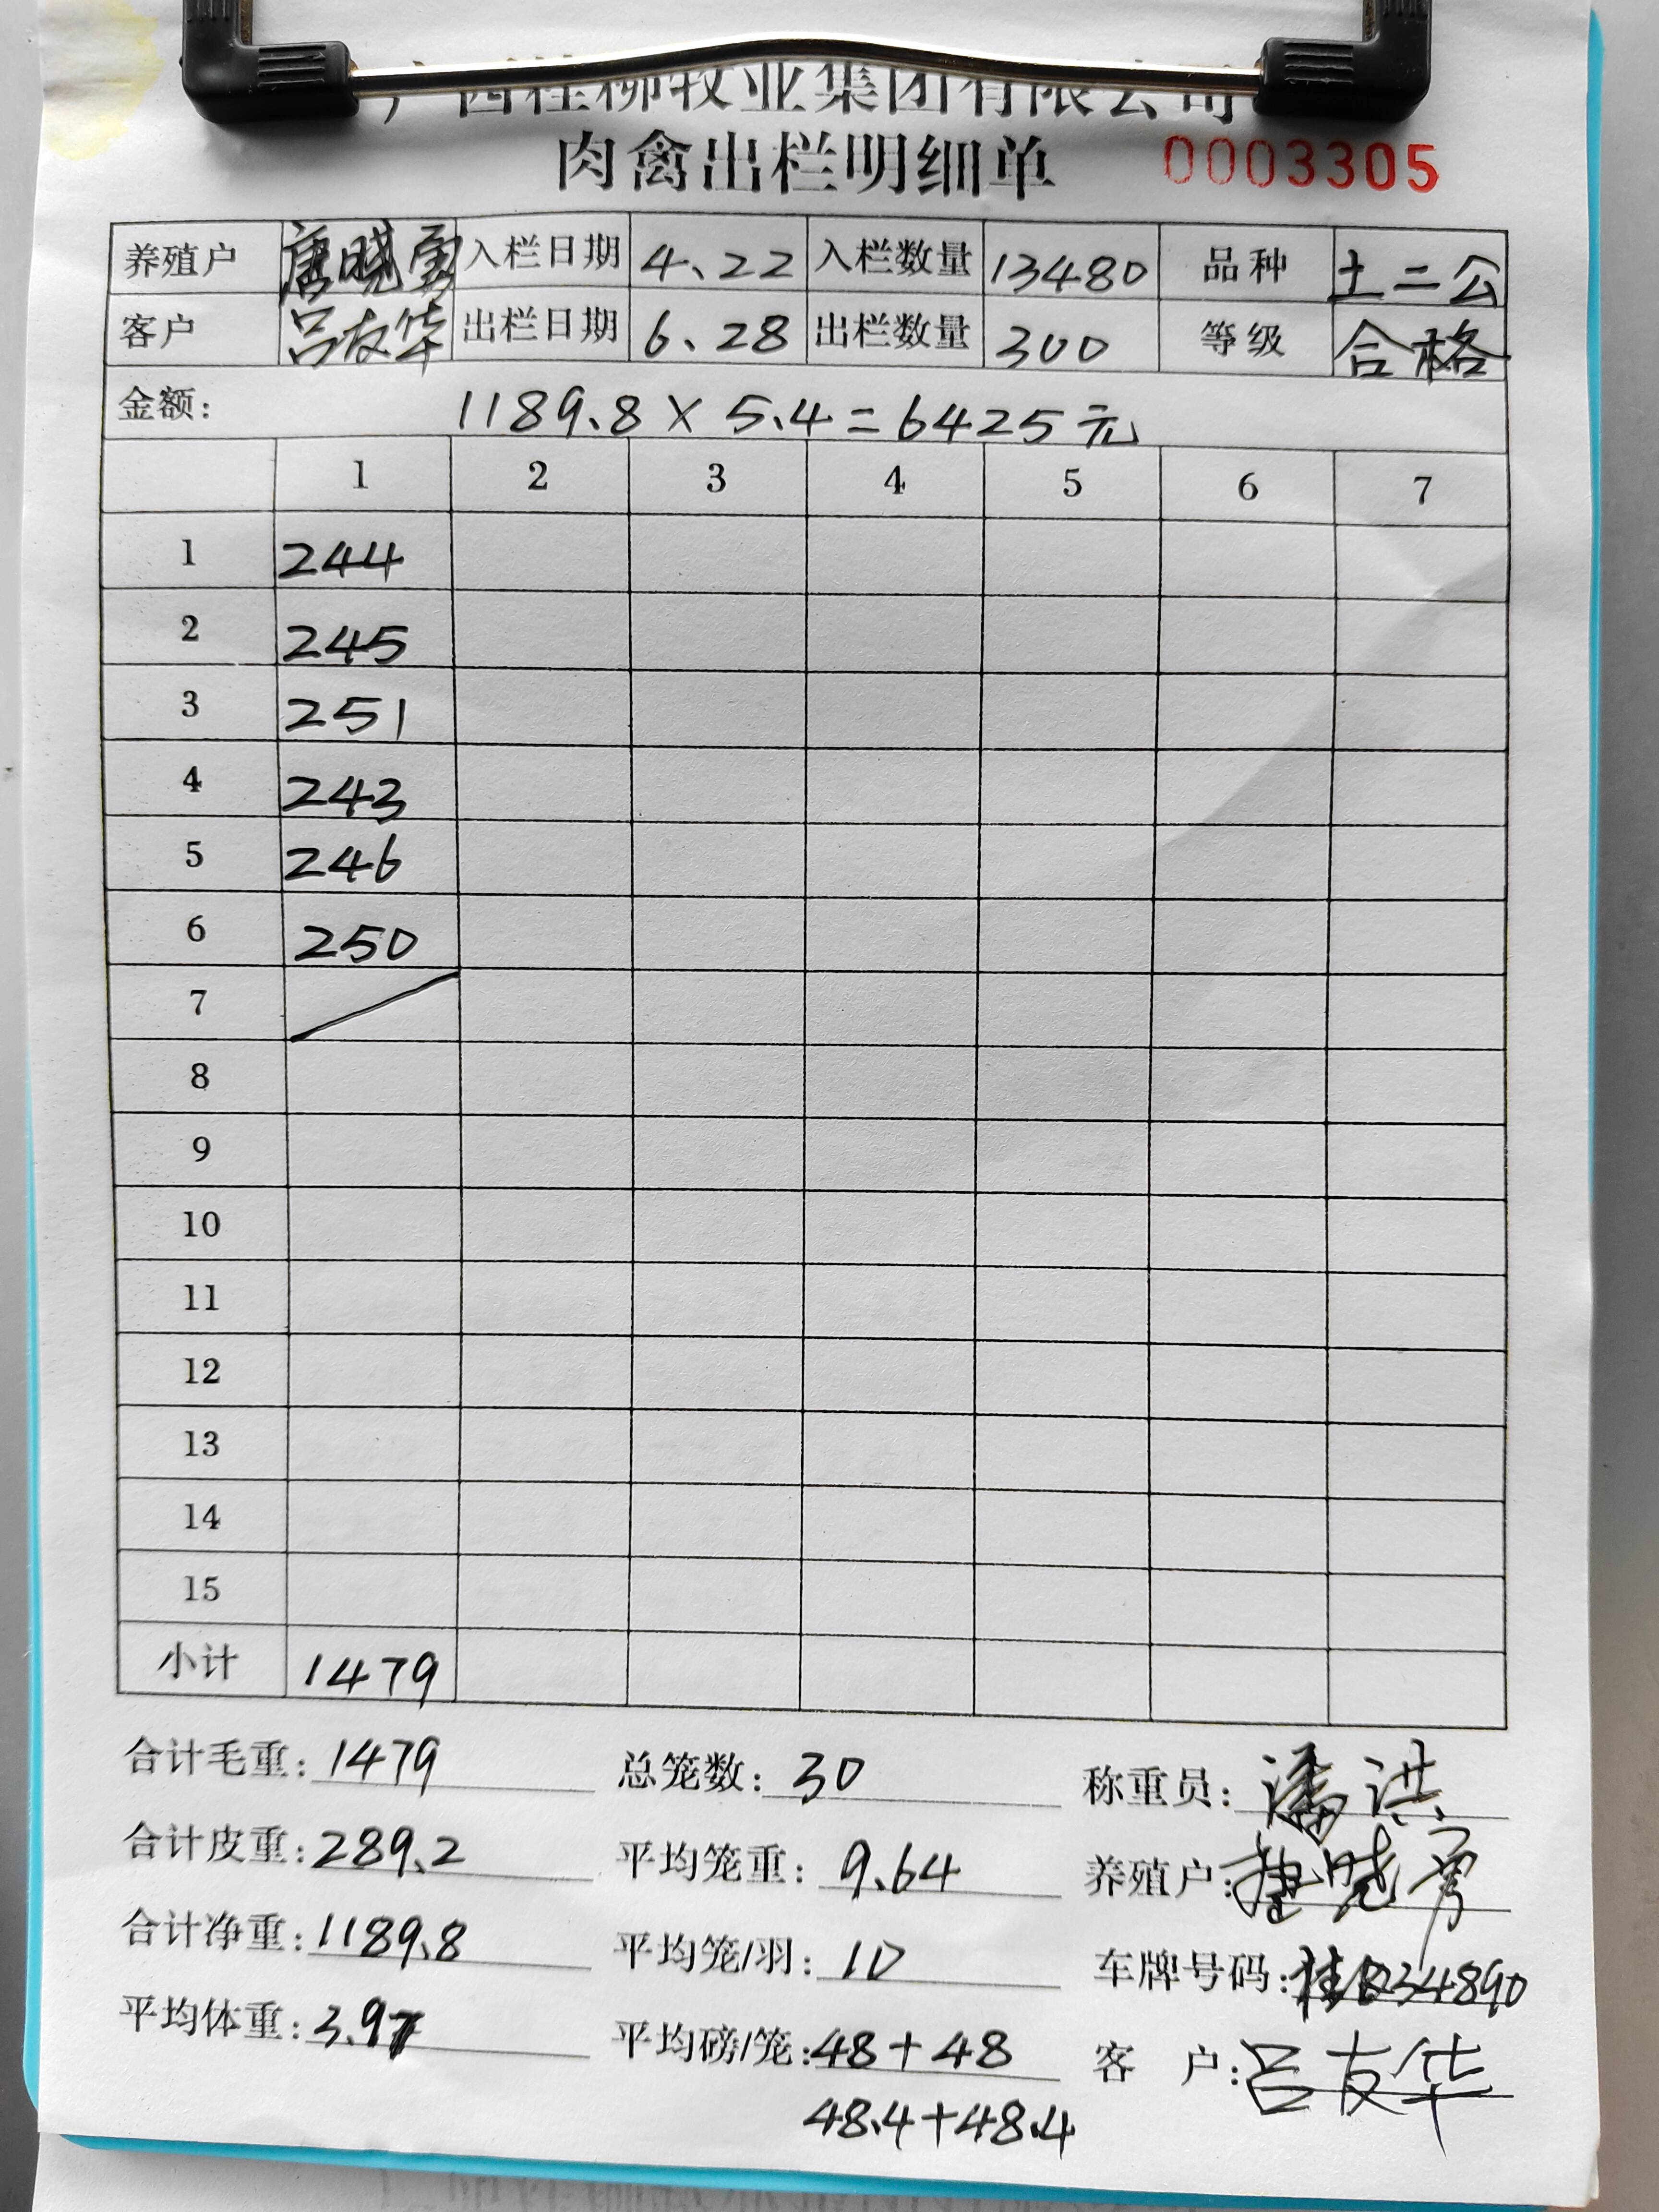 广西桂柳牧业集团有限公司
肉禽出栏明细单 0003305
养殖户 唐晓勇 入栏日期 4、22 入栏数量 13480 品种 土二公
客户 吕友华 出栏日期 6、28 出栏数量 300 等级 合格
金额: 1189.8 × 5.4 = 6425元
1 2 3 4 5 6 7
1 244
2 245
3 251
4 243
5 246
6 250
7
8
9
10
11
12
13
14
15
小计 1479
合计毛重: 1479 总笼数: 30 称重员: 潘洪
合计皮重: 289.2 平均笼重: 9.64 养殖户: 晓勇
合计净重: 1189.8 平均笼/羽: 10 车牌号码: 桂B34890
平均体重: 3.97 平均磅/笼: 48+48 客户: 吕友华
48.4+48.4